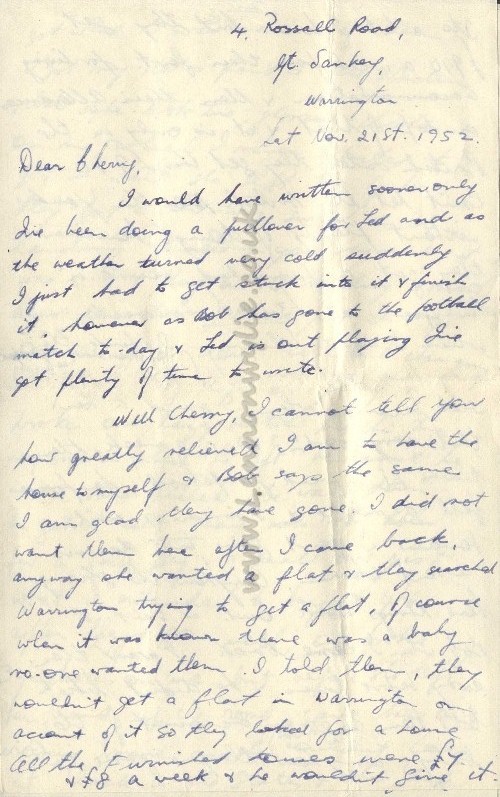 4, Rossall Road,
Gt. Sankey,
Warrington
Sat Nov. 21st. 1952.
Dear Cherry,
I would have written sooner only
I've been doing a pullover for Ted and as
the weather turned very cold suddenly
I just had to get stuck into it & finish
it, however as Bob has gone to the football
match to-day & Ted is out playing I've
got plenty of time to write.
Well Cherry, I cannot tell you
how greatly relieved I am to have the
house to myself & Bob says the same
I am glad they have gone. I did not
want them here after I came back,
anyway she wanted a flat & they searched
Warrington trying to get a flat, of course
when it was known there was a baby
no-one wanted them. I told them, they
wouldn't get a flat in Warrington on
account of it so they looked for a house
All the Furnished houses were £7.
& £8 a week & he wouldn't give it.